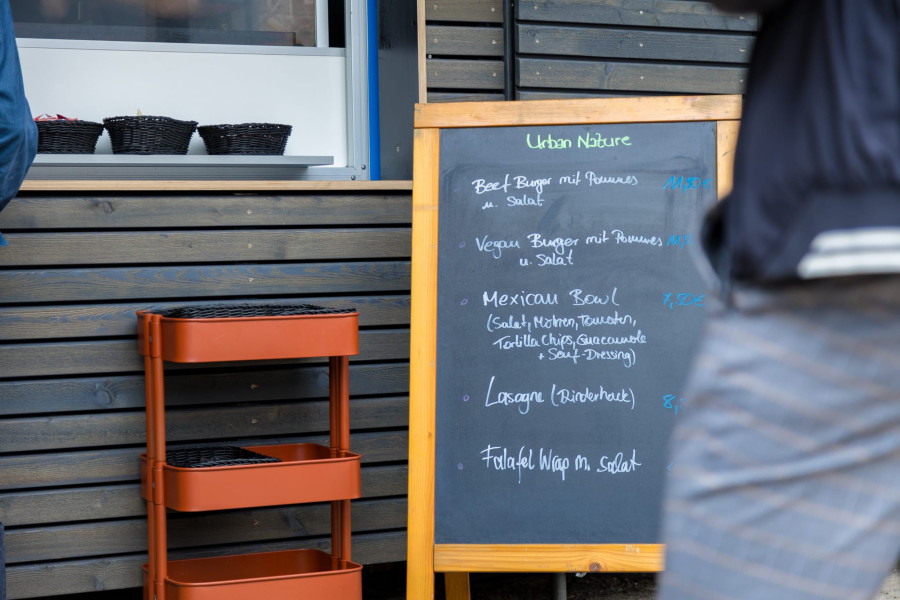 Urban Nature
Beef Burger mit Pommes
u. Salat
Vegan Burger mit Pommes
u. Salat
Mexican Bowl
(Salat, Möhren, Tomaten,
Tortilla Chips, Guacamole
+ Senf-Dressing)
Lasagne (Rinderhack)
8,
Falafel Wrap m. Salat